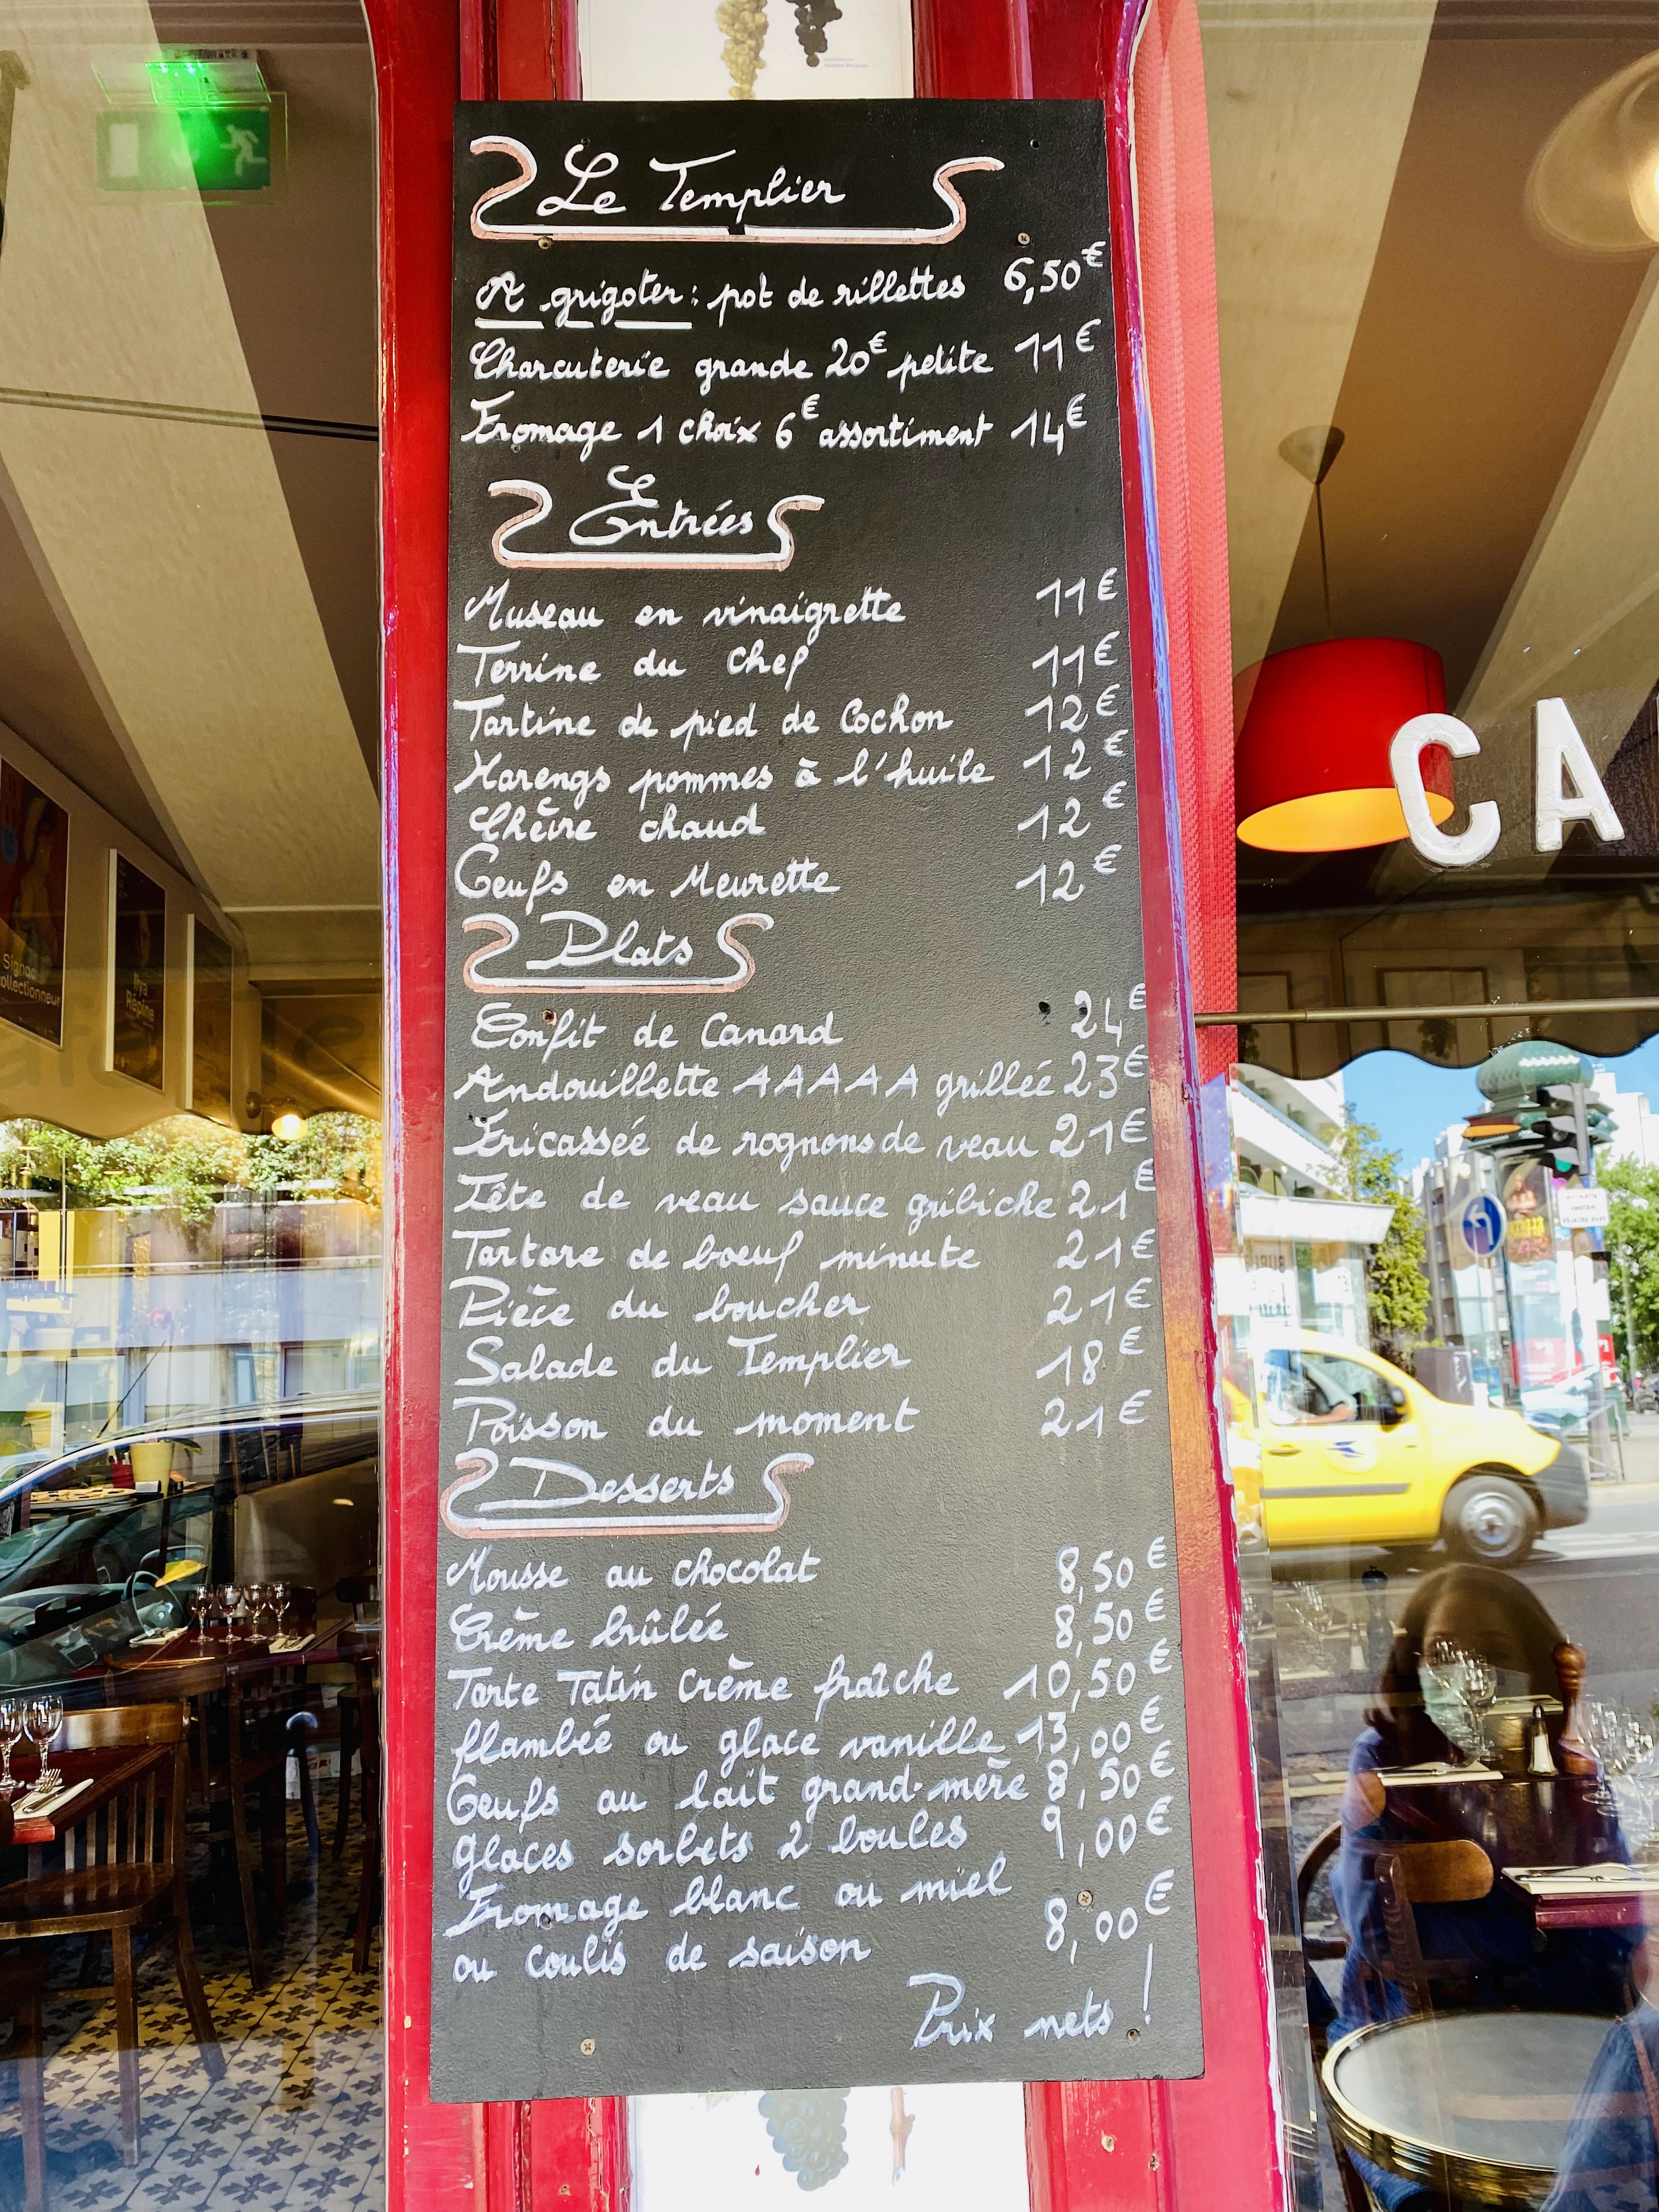 Le Templier
A grigoter : pot de rillettes 6,50€
Charcuterie grande 20€ petite 11€
Fromage 1 choix 6€ assortiment 14€
Entrées
Museau en vinaigrette 11€
Terrine du Chef 11€
Tartine de pied de Cochon 12€
Harengs pommes à l'huile 12€
Chèvre chaud 12€
Oeufs en Meurette 12€
Plats
Confit de Canard 24€
Andouillette AAAAA grillée 23€
Fricassée de rognons de veau 21€
Tête de veau sauce gribiche 21€
Tartare de boeuf minute 21€
Pièce du boucher 21€
Salade du Templier 18€
Poisson du moment 21€
Desserts
Mousse au chocolat 8,50€
Crème brûlée 8,50€
Tarte Tatin Crème fraîche 10,50€
flambée ou glace vanille 13,00€
Oeufs au lait grand-mère 8,50€
Glaces sorbets 2 boules 9,00€
Fromage blanc ou miel
ou coulis de saison 8,00€
Prix nets !
CA
Signac
collectionneur
Ilya
Répine